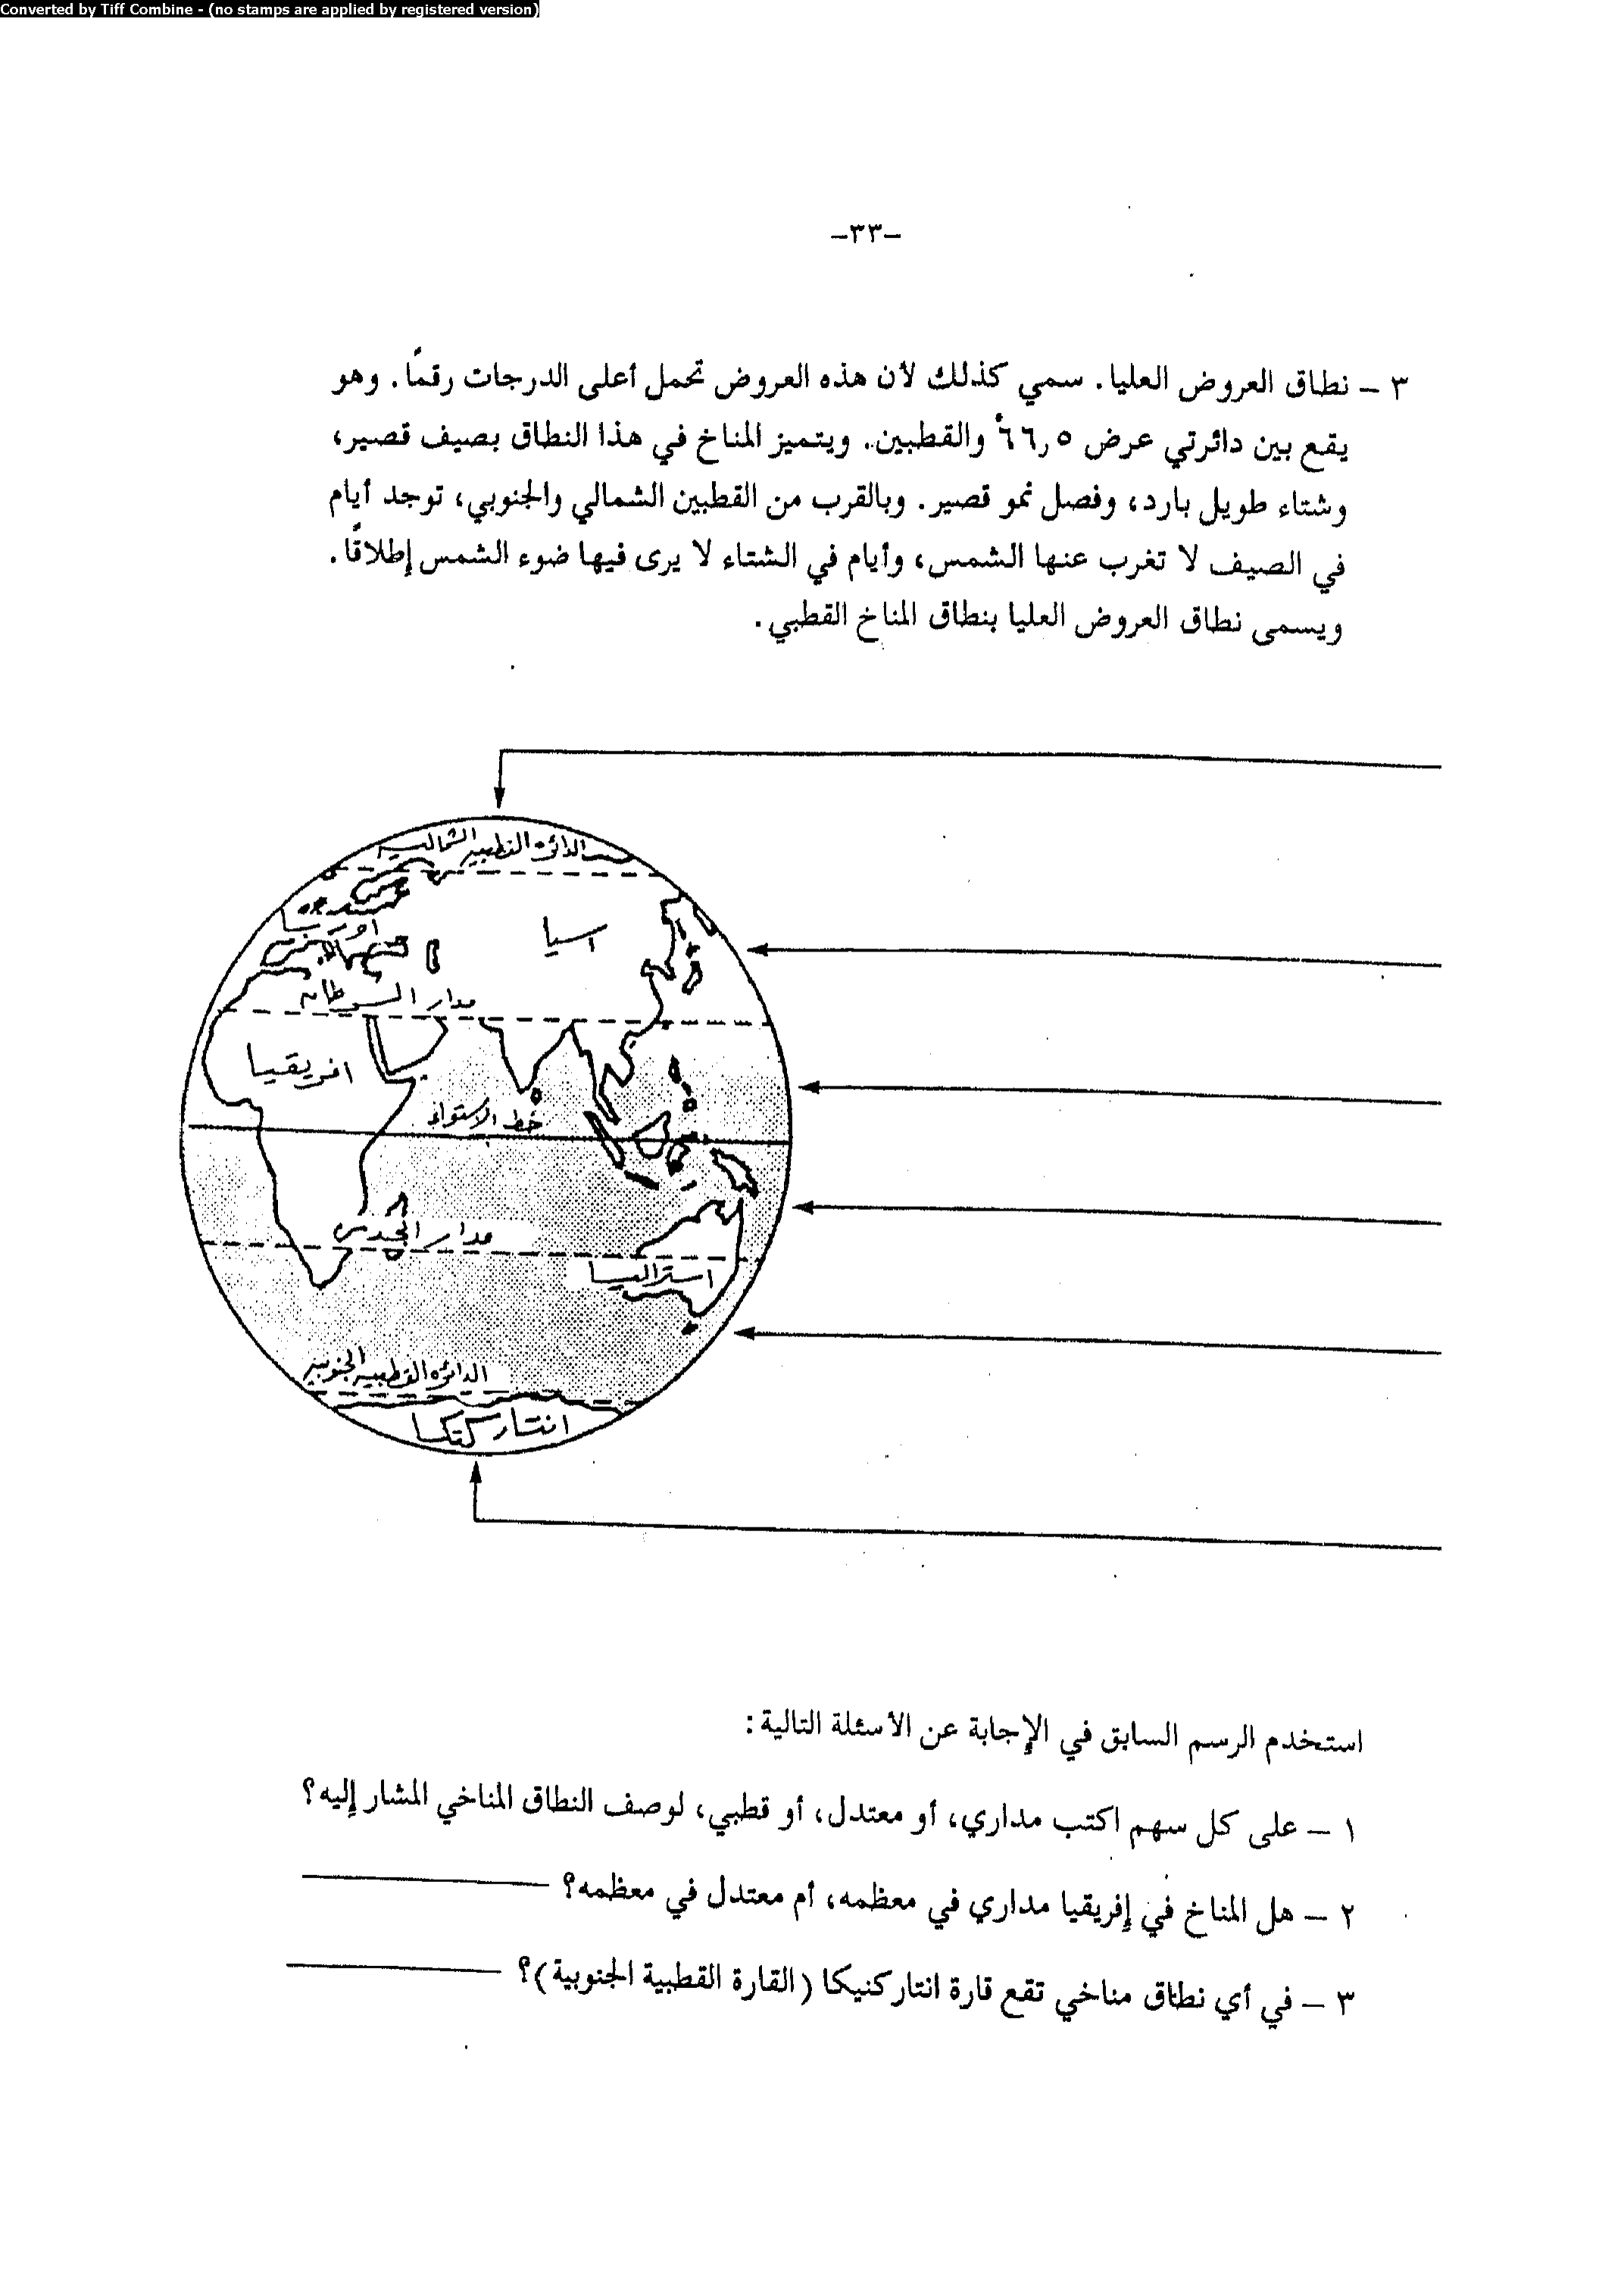 Converted by Tiff Combine - (no stamps are applied by registered version)
–٣٣–
٣ – نطاق العروض العليا. سمي كذلك لأن هذه العروض تحمل أعلى الدرجات رقمًا. وهو
يقع بين دائرتي عرض ٦٦,٥ْ والقطبين. ويتميز المناخ في هذا النطاق بصيف قصير،
وشتاء طويل بارد، وفصل نمو قصير. وبالقرب من القطبين الشمالي والجنوبي، توجد أيام
في الصيف لا تغرب عنها الشمس، وأيام في الشتاء لا يرى فيها ضوء الشمس إطلاقًا.
ويسمى نطاق العروض العليا بنطاق المناخ القطبي.
الدائره القطبيه الشماليه
اسيا
اوربا
مدار السرطان
افريقيا
خط الاستواء
مدار الجدي
استراليا
الدائره القطبيه الجنوبيه
انتاركتكا
استخدم الرسم السابق في الإجابة عن الأسئلة التالية:
١ – على كل سهم اكتب مداري، أو معتدل، أو قطبي، لوصف النطاق المناخي المشار إليه؟
٢ – هل المناخ في إفريقيا مداري في معظمه، أم معتدل في معظمه؟
٣ – في أي نطاق مناخي تقع قارة انتاركنيكا (القارة القطبية الجنوبية)؟